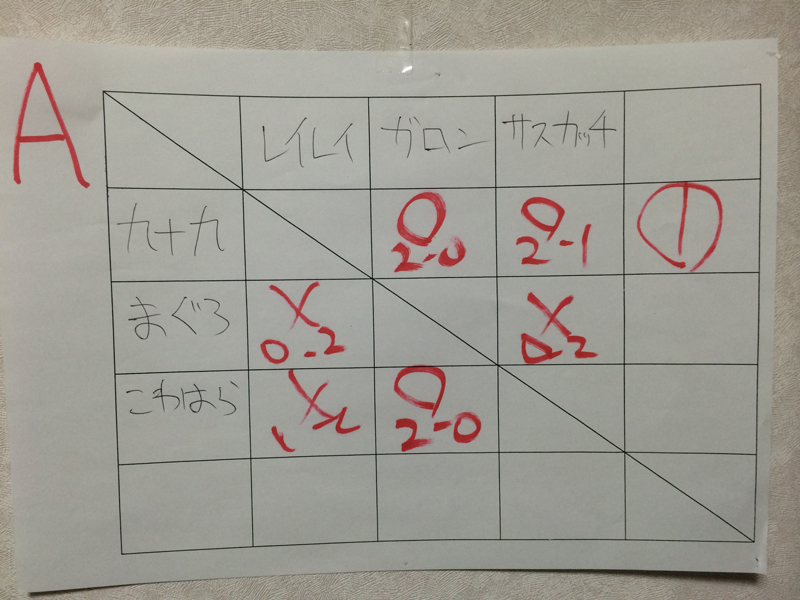 A
レイレイ ガロン サスカッチ
九十九 ○ ○ ①
2-0 2-1
まぐろ × ×
0-2 0-2
こわはら × ○
1-2 2-0